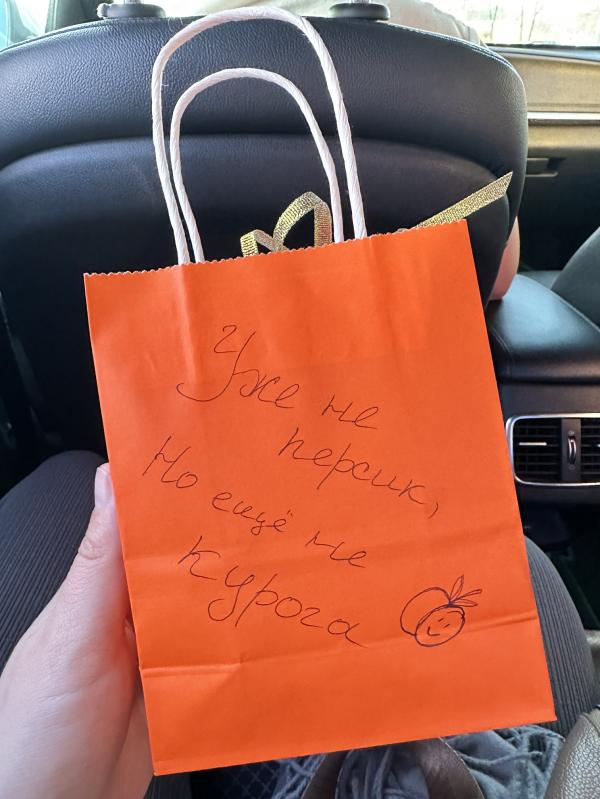 Уже не
персик,
Но ещё не
курага